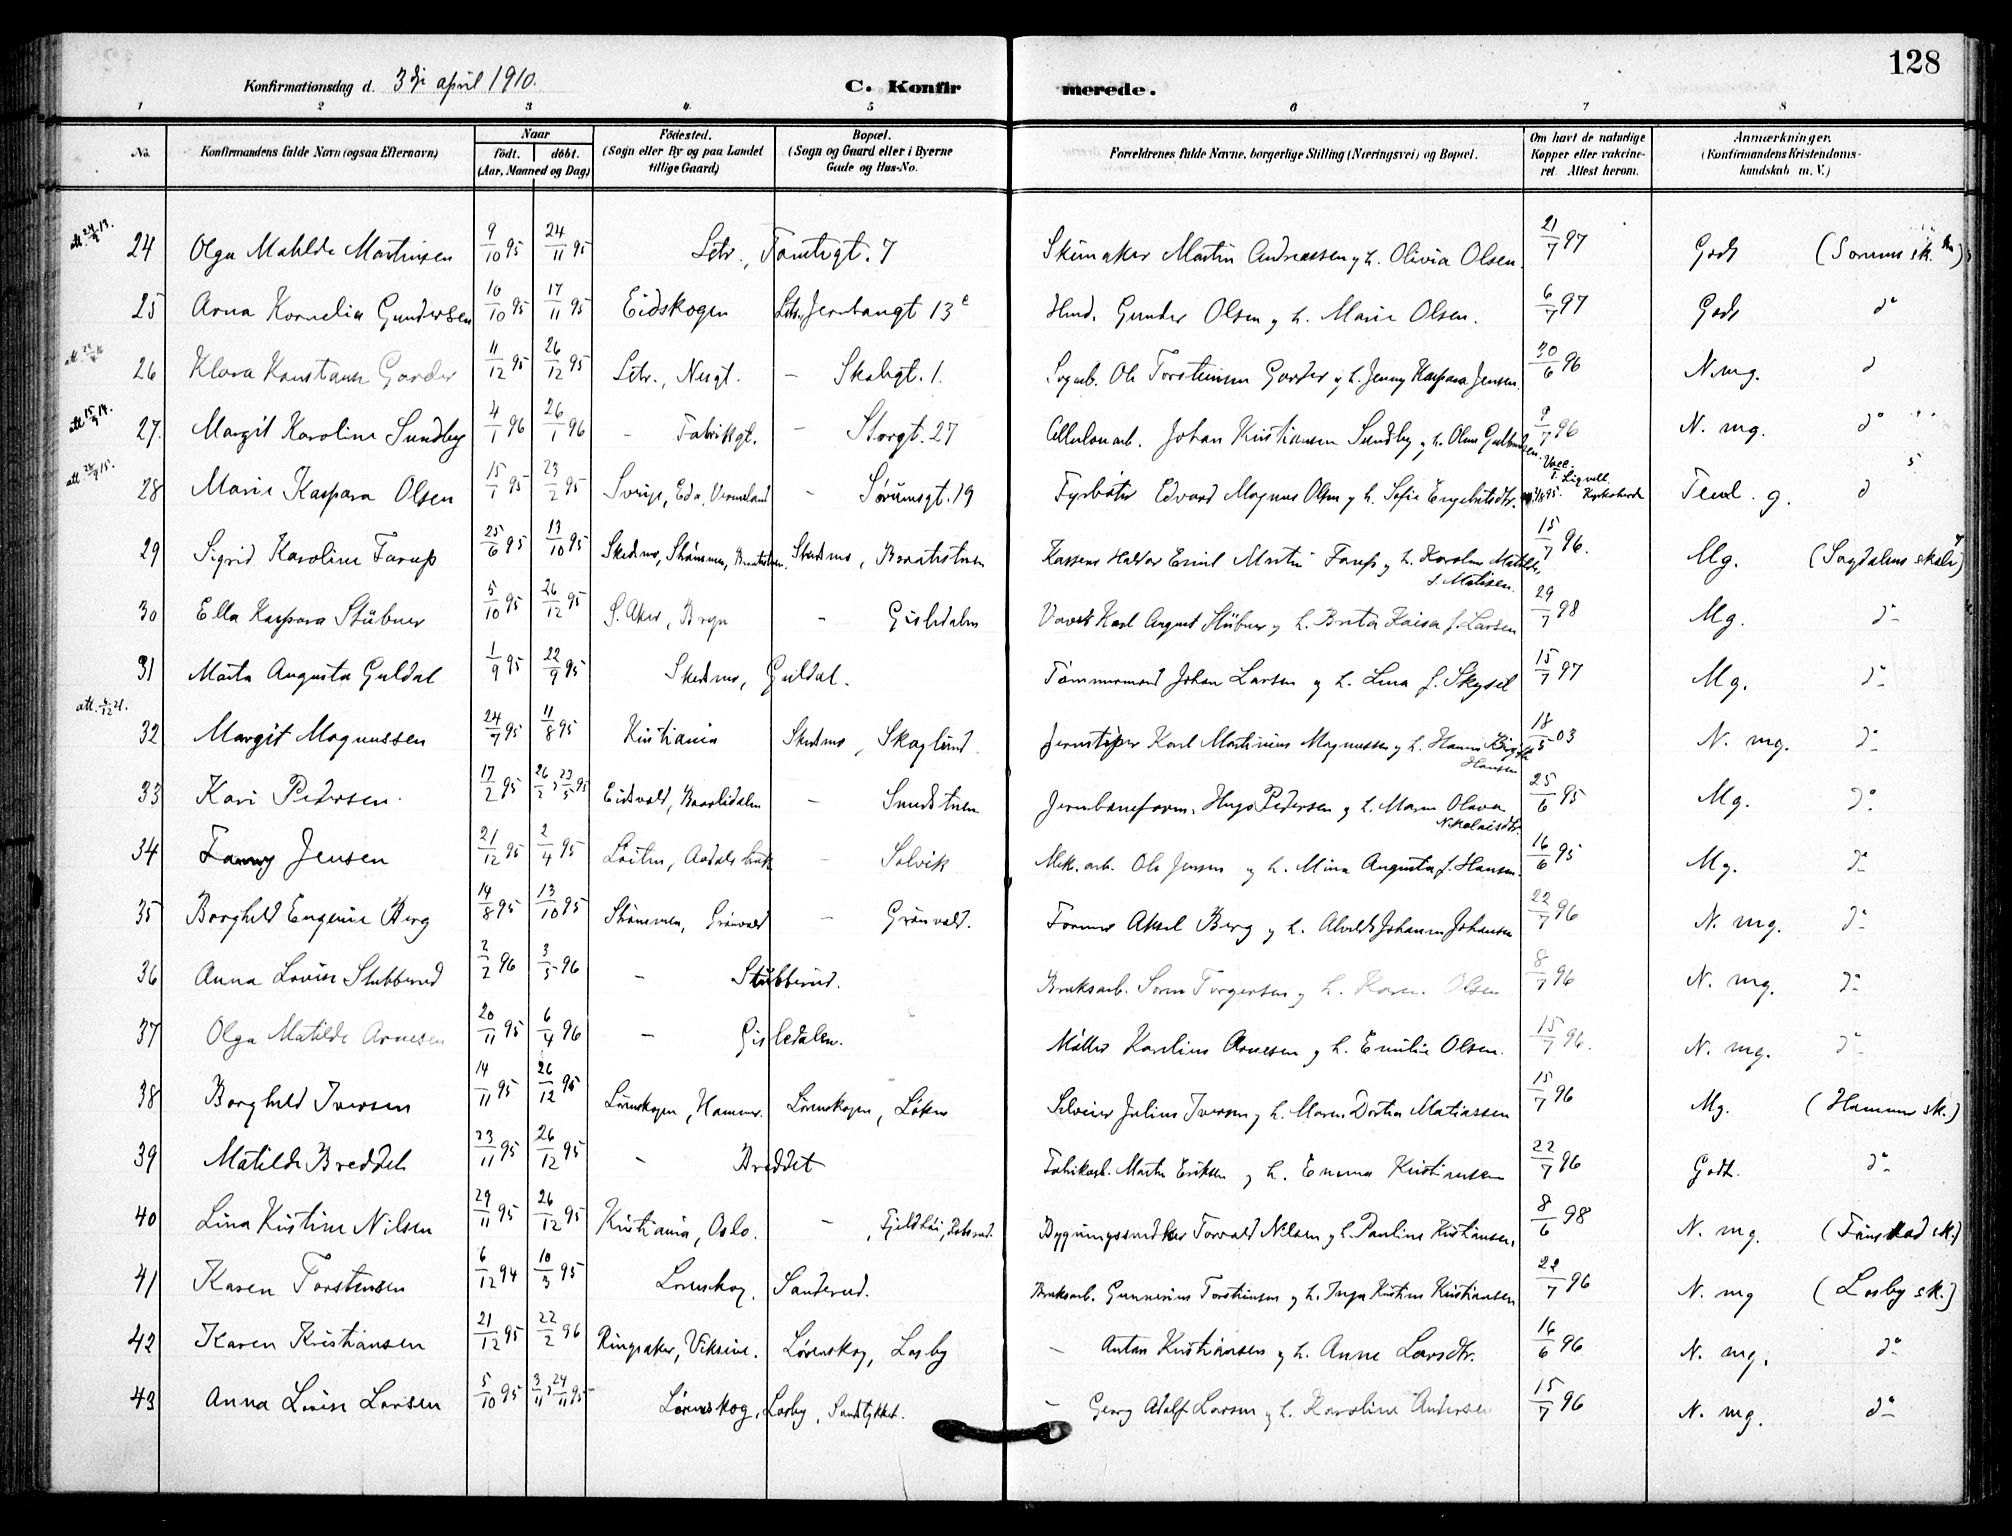 128
Konfirmationsdag d. 3dje april 1910.
C. Konfirmerede.
1 2 3 4 5 6 7 8
No.
Konfirmandens fulde Navn (ogsaa Efternavn)
Naar
født. døbt.
(Aar, Maaned og Dag)
Fødested.
(Sogn eller By og paa Landet
tillige Gaard)
Bopæl.
(Sogn og Gaard eller i Byerne
Gade og Hus-No.
Forældrenes fulde Navne, borgerlige Stilling (Næringsvei) og Bopæl.
Om havt de naturlige
Kopper eller vakcine-
ret. Attest herom.
Anmærkninger.
(Konfirmandens Kristendoms-
kundskab m. V.)
24 Olga Matilde Martinsen 9/10 95 24/11 95 Lstr., Tomtegt. 7 Skomaker Martin Andreassen g. h. Olivia Olsen. 21/7 97 Godt
25 Arna Kornelia Gundersen 10/10 95 17/11 95 Eidskogen Lstr. Jernbangt 13 Gunder Olsen g h. Marie Olsen. 6/7 97 Godt do
26 Klara Konstanse Garder 11/12 95 26/12 95 Lstr., Nesgt. - Skolegt. 1. Ole Torstensen Garder g h. Jenny Kaspara Jensen. 30/6 96 N. mg. d
27. Margit Karoline Sundby 4/1 96 26/1 96 - Fabrikgt. - Storgt. 27 Johan Kristiansen Sundby g h. 9/7 96 N. mg. do
28 Marie Kaspara Olsen 15/1 95 23/2 95 Sverige, Eda, Vermeland - Sørumsgt. 19 Fyrbøter Edvard Magnus Olsen g h. Sofie Engebretsdtr. g. d
29 Sigrid Karoline Farup 25/6 95 13/10 95 Skedsmo, Strømmen, Skedsmo, Emil Martin Farup g h. Karoline Matilde f. Matisen. 15/7 96. Mg. (Sagdalens skole)
30 Ella Kaspara Stübner 5/10 95 26/12 95 Ø. Aker, Bryn - Gisledalen Karl August Stübner g h. Brita Kaisa f. Larsen 29/7 98 Mg. do
31 Marta Augusta Guldal 1/9 95 22/9 95 Skedsmo, Guldal. Tømmermand Johan Larsen g h. Lina f. 15/7 97 Mg. do
32 Margit Magnussen 24/7 95 11/8 95 Kristiania Skedsmo, Skoglund. Jernstøper Karl Martinius Magnussen g h. Hansen 18/5 03 N. mg. do
33 Kari Pedersen. 17/2 95 Eidsvold, - Jernbaneform. Hugo Pedersen g h. Maren Olava Nikolaisdtr. 25/6 95 Mg. do
34 Fanny Jensen 21/12 95 2/4 95 Løiten, Aadals bruk - Solvik Mek. arb. Ole Jensen g h. Mina Augusta f. Hansen. 16/6 95 Mg. do
35 Borghild Eugenie Berg 14/8 95 13/10 95 Strømmen, Grønvold - Grønvold. Former Aksel Berg g h. Alvilde Johanne Johansen 22/7 96 N. mg. do
36 Anna Lovise Stubberud 2/2 96 3/5 96 - Stubberud. Bruksarb. Torgersen g h. Karen Olsen 8/7 96 N. mg. do
37 Olga Matilde Arnesen 20/11 95 6/4 96 - Gisledalen. Møller Karelius Arnesen g h. Emilie Olsen. 15/7 96. N. mg. do
38 Borghild Iversen 14/11 95 26/12 95 Lørenskogen, Hammer. Lørenskogen, Løken Julius Iversen g h. Maren Dortea Matiassen 15/7 96 Mg. (Hammer sk.)
39 Matilde Breddeli 23/11 95 26/12 95 - Fabrikarb. Martin Eriksen g h. Emma Kristiansen 22/7 96 Godt. do
40 Lina Kristine Nilsen 29/11 95 26/12 95 Kristiania, Oslo. - Bygningssnedker Torvald Nilsen g h. Pauline Kristiansen. 8/6 98 N. mg. (Finstad sk.)
41 Karen Torstensen 6/12 94 10/3 95 Lørenskog, Sanderud. Bruksarb. Gunnerius Torstensen g h. Inga Kristine Kristiansen 22/7 96 N. mg (Losby sk.)
42 Karen Kristiansen 21/12 95 22/2 96 Ringsaker, Lørenskog, Losby - Anton Kristiansen g h. Anne Larsdtr. 16/6 96 N. mg. do
43 Anna Lovise Larsen 5/10 95 Lørenskog, Losby, - Georg Adolf Larsen g h. Karoline Andersen 15/7 96 N. mg. do